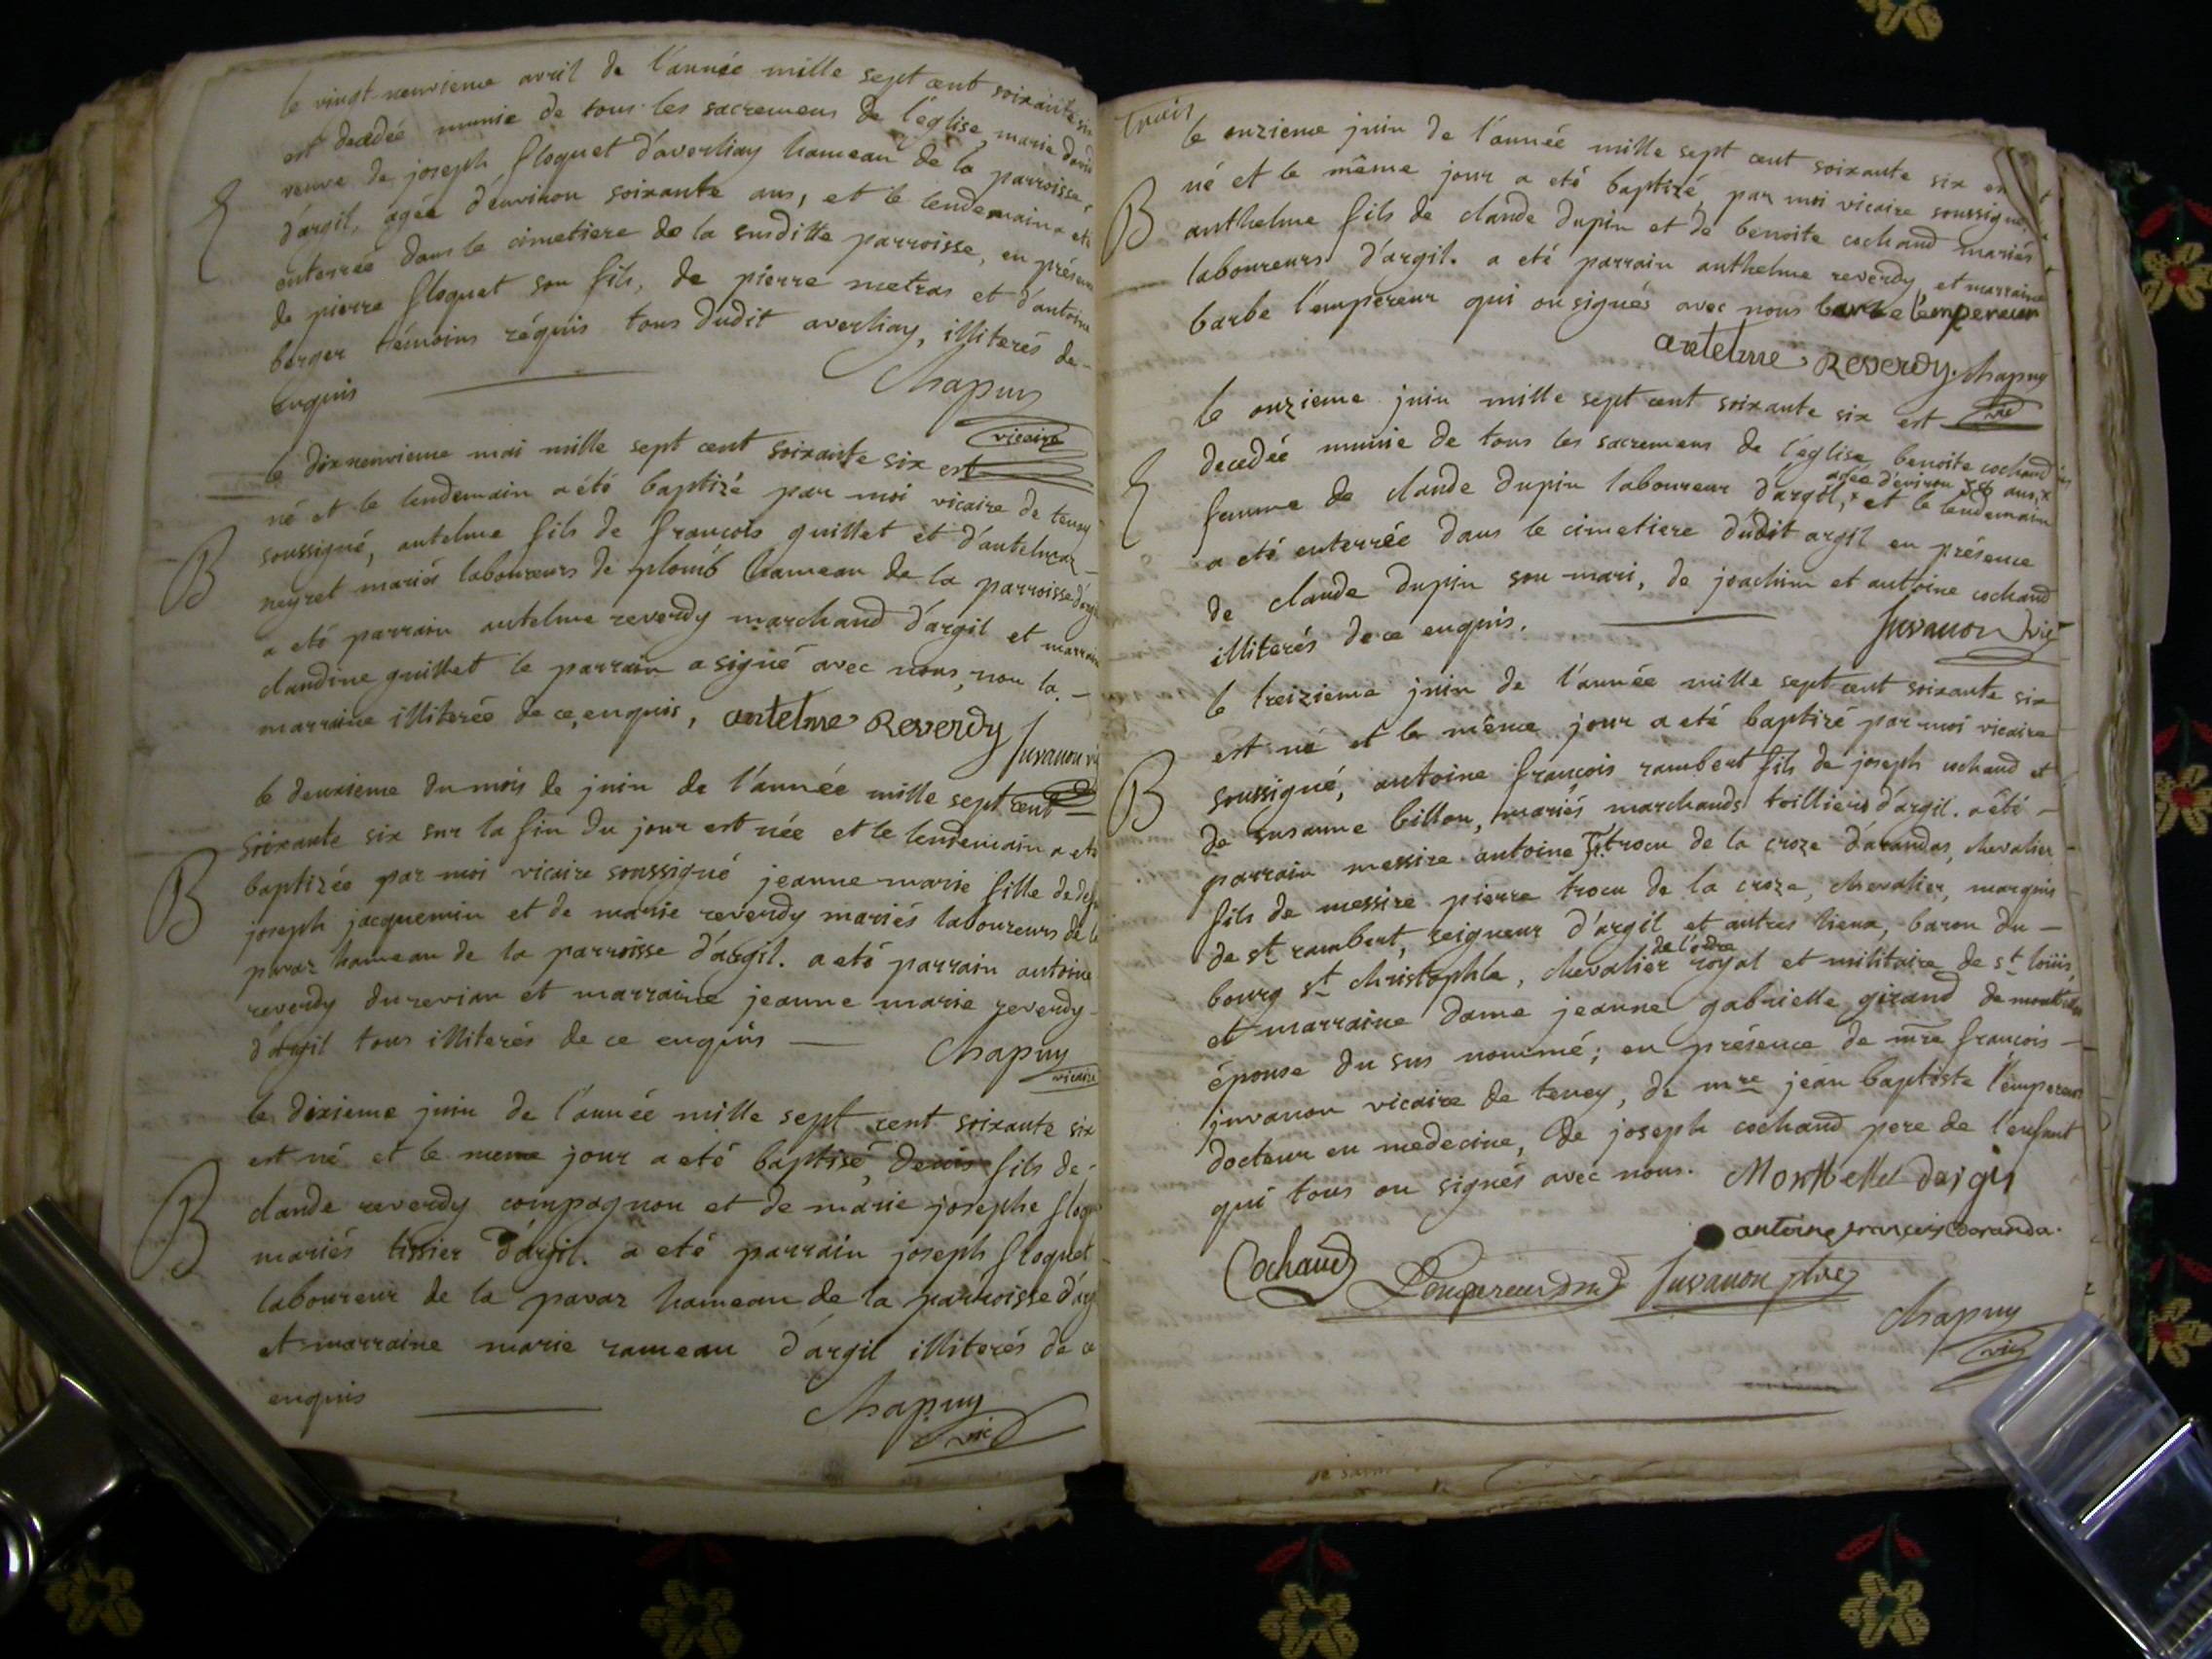 le vingt-neuvieme avril de l'année mille sept cent soixante six
est decedée munie de tous les sacremens de l'église, marie david
veuve de joseph floquet d'averliay hameau de la parroisse
d'argil, agée d'environ soixante ans, et le lendemain a eté
E
enterrée dans le cimetiere de la susditte parroisse, en présence
de pierre floquet son fils, de pierre metras et d'antoine
berger témoins réquis tous dudit averliay, illiterés de -
enquis
Chapuy
vicaire
le dixneuvieme mai mille sept cent soixante six est
né et le lendemain a été baptizé par moi vicaire de tenay
B
soussigné, antelme fils de francois guillet et d'antelmaz
neyret mariés laboureurs de plomb hameau de la parroisse d'argil
a eté parrain antelme reverdy marchand d'argil et marraine
claudine guillet le parrain a signé avec nous, non la -
marraine illiterée de ce, enquis, antelme Reverdy
Juvanon vic
le deuxieme du mois de juin de l'année mille sept cent
soixante six sur la fin du jour est née et le lendemain a eté
B
baptizée par moi vicaire soussigné jeanne marie fille de
joseph jacquemin et de marie reverdy mariés laboureurs de la
pavaz hameau de la parroisse d'argil. a eté parrain antoine
reverdy du revian et marraine jeanne marie reverdy
d'argil tous illiterés de ce enquis
Chapuy
vicaire
le dixieme juin de l'année mille sept cent soixante six
est né et le meme jour a eté baptisé, denis fils de -
B
claude reverdy compagnon et de marie josephe floquet
mariés tissier d'argil. a eté parrain joseph floquet
laboureur de la pavaz hameau de la parroisse d'arg
et marraine marie rameau d'argil illiterés de ce
enquis
Chapuy
vic
Trois
le onzieme juin de l'année mille sept cent soixante six est
né et le même jour a eté baptizé, par moi vicaire soussigné,
B
anthelme fils de claude dupin et de benoite cochand mariés
laboureurs d'argil. a eté parrain anthelme reverdy, et marraine
barbe l'empereur qui on signés avec nous barbe lemperaur
antelme Reverdy. Chapuy
vic
le onzieme juin mille sept cent soixante six est
decedée munie de tous les sacremens de l'église benoite cochand
E
agée d'environ ans,
femme de claude dupin laboureur d'argil, x et le lendemain
a eté enterrée dans le cimetiere dudit argil en présence
de claude dupin son mari, de joachim et antoine cochand
illiterés de ce enquis.
Juvanon vic
le treizieme juin de l'année mille sept cent soixante six
est né et le même jour a eté baptizé par moi vicaire
B
soussigné, antoine françois rambert fils de joseph cochand et
de susanne billon, mariés marchands toilliers d'argil. a été -
parrain messire antoine f. trocu de la croze d'arandas, chevalier
fils de messire pierre trocu de la croze, chevalier, marquis
de st rambert, seigneur d'argil et autres lieux, baron du -
de l'ordre
bourg st christophle, chevalier royal et militaire de st loüis,
et marraine dame jeanne gabrielle girand de montbellet
épouse du sus nommé; en présence de mre françois -
juvanon vicaire de tenay, de mre jean baptiste l'empereur
docteur en medecine, de joseph cochand pere de l'enfant
qui tous on signés avec nous. Montbellet dargis
antoine françois daranda.
Cochand Lempereur dmd Juvanon ptre
Chapuy
vic